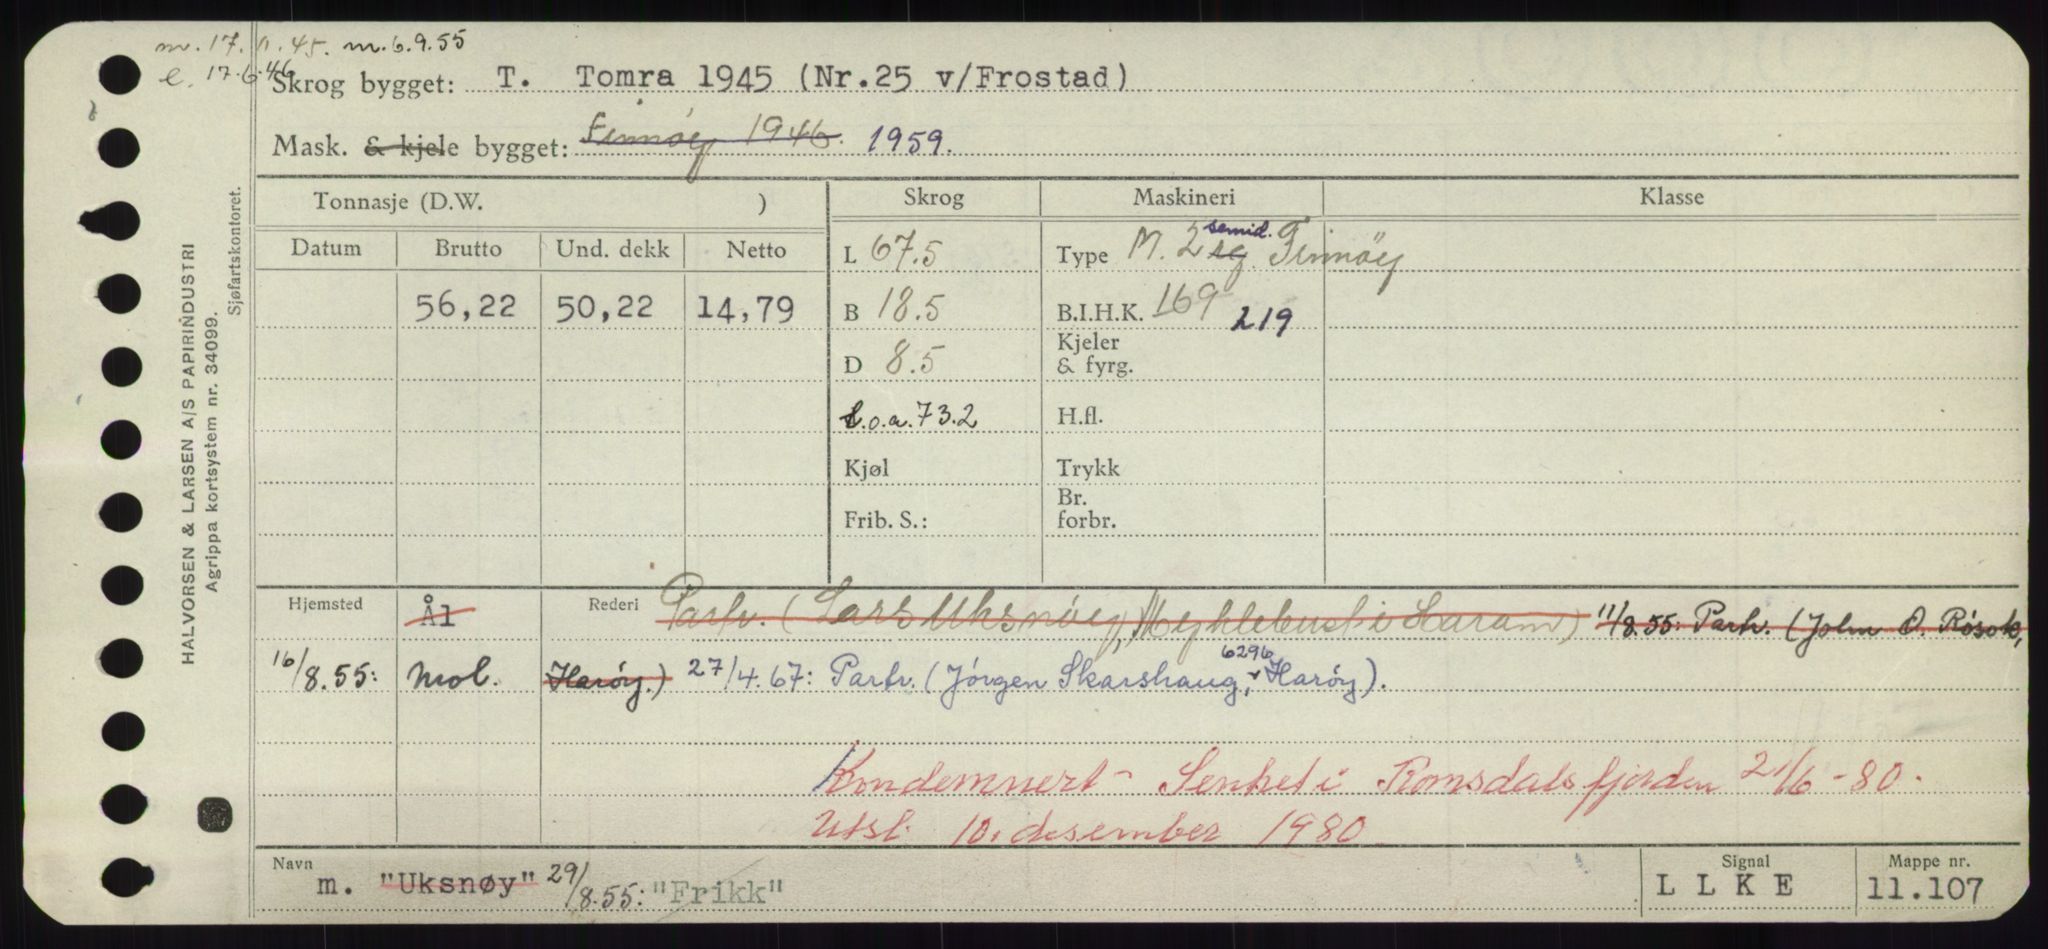 m. 17. 11. 45. m. 6.9.55
l. 17.6.46
Skrog bygget: T. Tomra 1945 (Nr.25 v/Frostad)
Mask. & kjele bygget: Finnøy 1946. 1959.
Tonnasje (D.W. ) Skrog Maskineri Klasse
Datum Brutto Und. dekk Netto L 67.5 Type M. 2 sg semid. Finnøy
56,22 50,22 14,79 B 18.5 B.I.H.K. 169 219
D 8.5 Kjeler & fyrg.
L.o.a. 73.2 H.fl.
Kjøl Trykk
Frib. S.: Br. forbr.
Hjemsted Ål Rederi Partr. (Lars Uksnøy, Myklebust i Haram) 11/8.55: Partr. (John O. Røsok,
16/8.55: Mol. Harøy.) 27/4.67: Partr. (Jørgen Skarshaug, 6296 Harøy).
Kondemnert - Senket i Romsdalsfjorden 21/6-80.
Utsl. 10. desember 1980
Navn m. "Uksnøy" 29/8.55: "Frikk" Signal LLKE Mappe nr. 11.107
HALVORSEN & LARSEN A/S PAPIRINDUSTRI
Agrippa kortsystem nr. 34099.
Sjøfartskontoret.